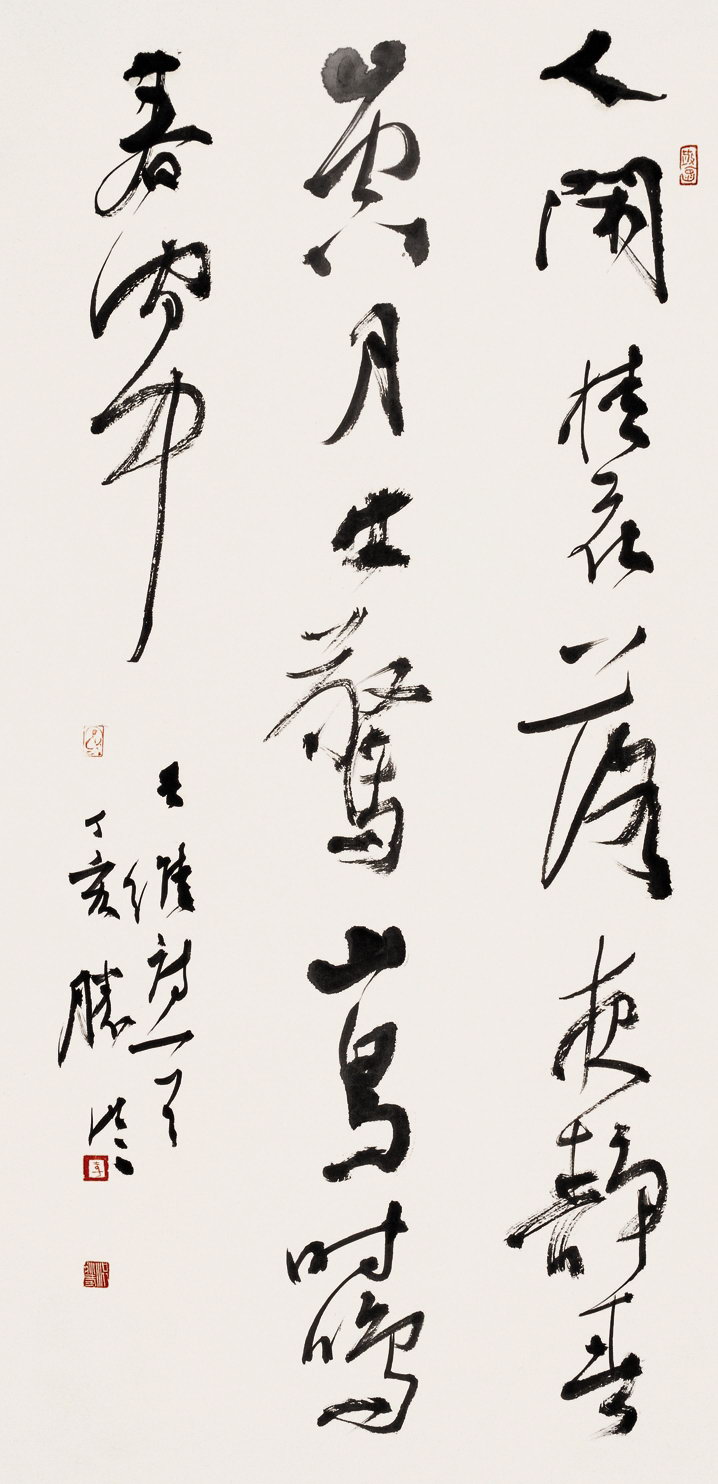 人閑桂花落夜靜春
山空月出驚山鳥時鳴
春澗中
王維詩一首
丁亥勝